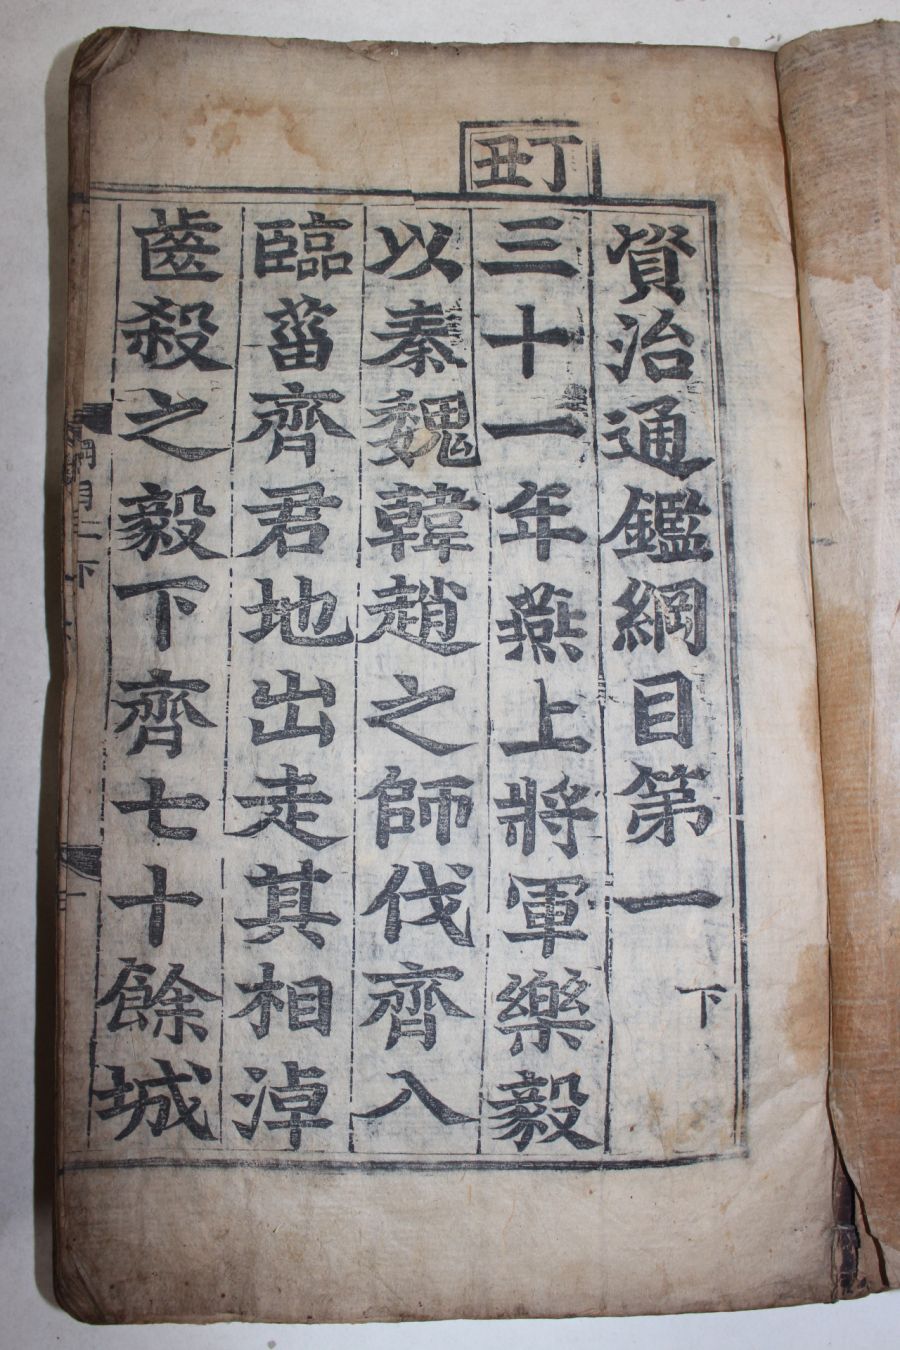 丁丑
資治通鑑綱目第一下
三十一年燕上將軍樂毅
以秦魏韓趙之師伐齊入
臨菑齊君地出走其相淖
齒殺之毅下齊七十餘城
綱目一下